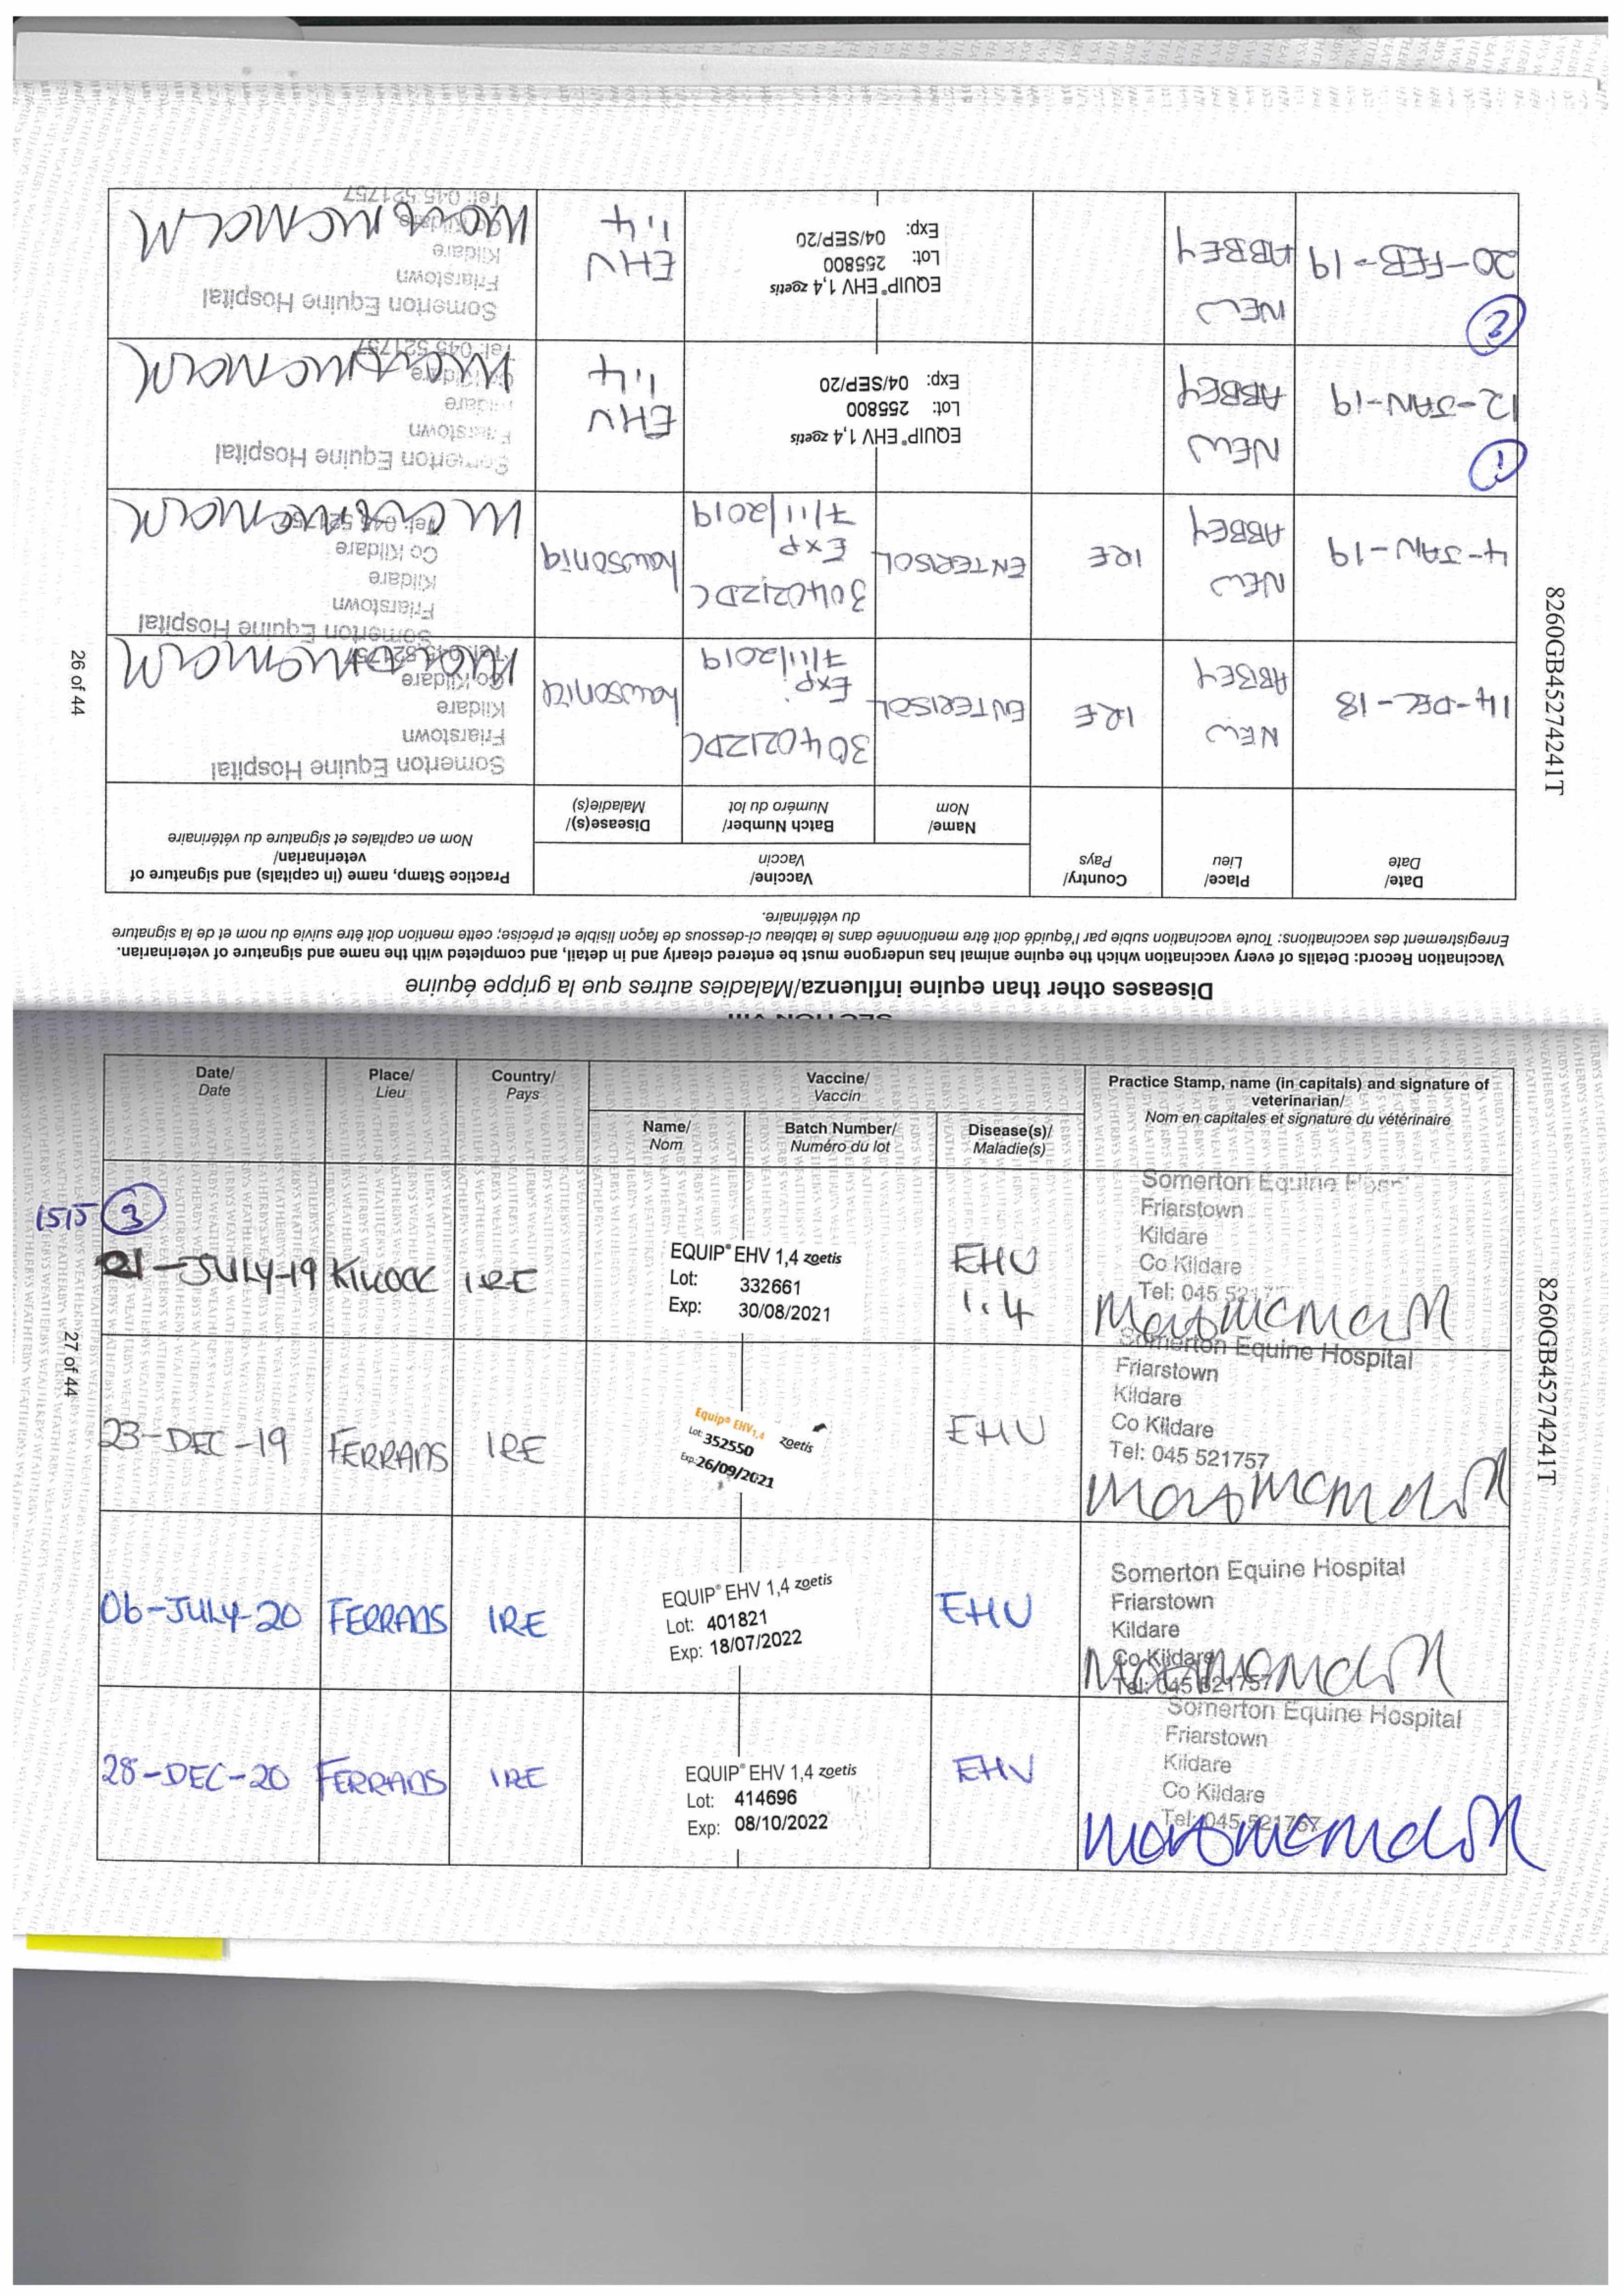 SECTION VIII
Diseases other than equine influenza/Maladies autres que la grippe équine
Vaccination Record: Details of every vaccination which the equine animal has undergone must be entered clearly and in detail, and completed with the name and signature of veterinarian.
Enregistrement des vaccinations: Toute vaccination subie par l'équidé doit être mentionnée dans le tableau ci-dessous de façon lisible et précise; cette mention doit être suivie du nom et de la signature
du vétérinaire.
Date/
Date
Place/
Lieu
Country/
Pays
Vaccine/
Vaccin
Name/
Nom
Batch Number/
Numéro du lot
Disease(s)/
Maladie(s)
Practice Stamp, name (in capitals) and signature of
veterinarian/
Nom en capitales et signature du vétérinaire
14-DEC-18
NEW
ABBEY
IRE
ENTERISOL
3040212DC
Exp:
7/11/2019
Lawsonia
Somerton Equine Hospital
Friarstown
Kildare
Co Kildare
4-JAN-19
NEW
ABBEY
IRE
ENTERISOL
3040212DC
Exp
7/11/2019
Lawsonia
Somerton Equine Hospital
Friarstown
Kildare
Co Kildare
Tel: 045 521757
1
12-JAN-19
NEW
ABBEY
EQUIP® EHV 1,4 zoetis
Lot: 255800
Exp: 04/SEP/20
EHV
1.4
Somerton Equine Hospital
Friarstown
Kildare
Tel: 045 521757
2
20-FEB-19
NEW
ABBEY
EQUIP® EHV 1,4 zoetis
Lot: 255800
Exp: 04/SEP/20
EHV
1.4
Somerton Equine Hospital
Friarstown
Kildare
Tel: 045 521757
26 of 44
8260GB45274241T
Date/
Date
Place/
Lieu
Country/
Pays
Vaccine/
Vaccin
Name/
Nom
Batch Number/
Numéro du lot
Disease(s)/
Maladie(s)
Practice Stamp, name (in capitals) and signature of
veterinarian/
Nom en capitales et signature du vétérinaire
1515 3
01-JULY-19
KILCOCK
IRE
EQUIP® EHV 1,4 zoetis
Lot: 332661
Exp: 30/08/2021
EHV
1.4
Somerton Equine
Friarstown
Kildare
Co Kildare
Tel: 045
23-DEC-19
FERRANS
IRE
Equip® EHV1,4 zoetis
Lot: 352550
Exp: 26/09/2021
EHV
Somerton Equine Hospital
Friarstown
Kildare
Co Kildare
Tel: 045 521757
06-JULY-20
FERRANS
IRE
EQUIP® EHV 1,4 zoetis
Lot: 401821
Exp: 18/07/2022
EHV
Somerton Equine Hospital
Friarstown
Kildare
Co Kildare
Tel: 045 521757
28-DEC-20
FERRANS
IRE
EQUIP® EHV 1,4 zoetis
Lot: 414696
Exp: 08/10/2022
EHV
Somerton Equine Hospital
Friarstown
Kildare
Co Kildare
Tel: 045 521757
27 of 44
8260GB45274241T